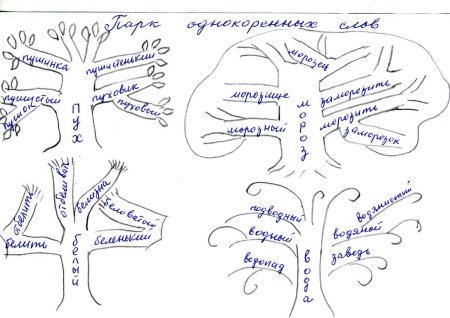 Парк однокоренных слов
пушинка
пушистенький
пушистый
пуховик
пушок
пуховый
пух
морозец
морозище
заморозить
морозный
морозить
заморозок
мороз
отбелить
отбеливать
белизна
беловатый
белить
беленький
белый
подводный
водянистый
водный
водяной
водопад
заводь
вода